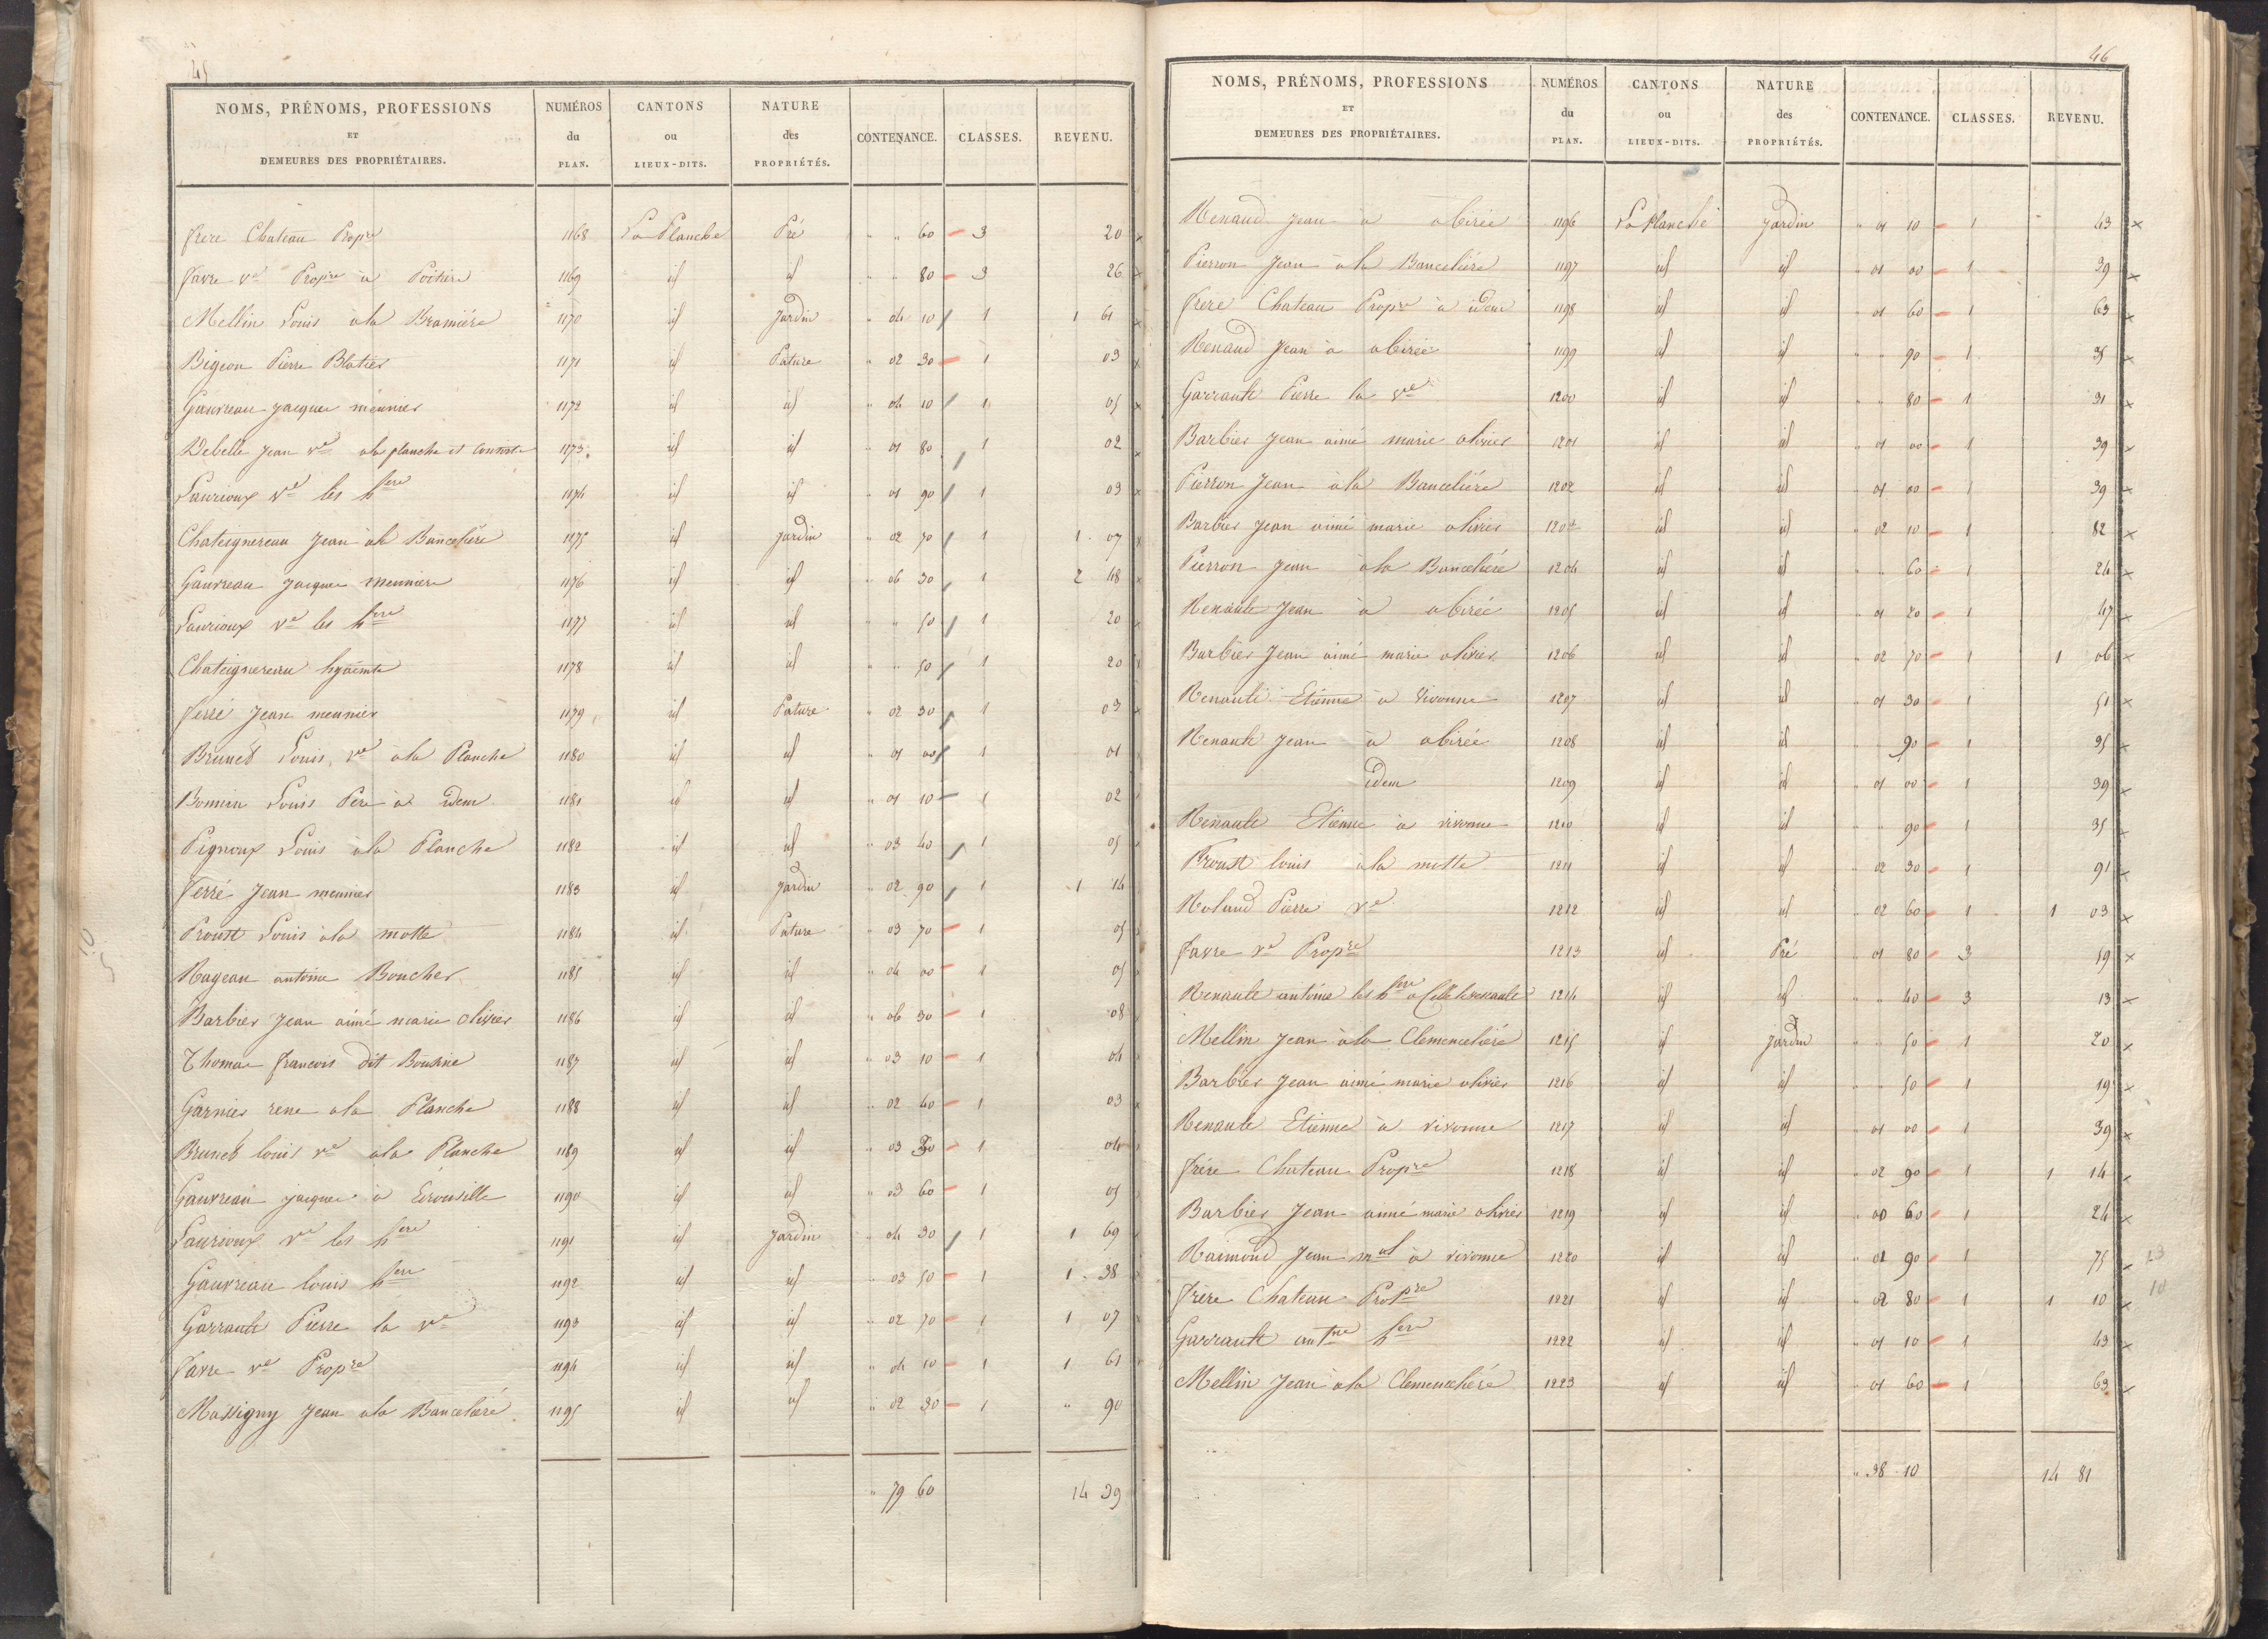 45
NOMS, PRÉNOMS, PROFESSIONS ET DEMEURES DES PROPRIÉTAIRES. NUMÉROS du PLAN. CANTONS ou LIEUX-DITS. NATURE des PROPRIÉTÉS. CONTENANCE. CLASSES. REVENU.
frere Chateau Propre 1168 La Planche Pré " " 60 3 20
favre ve Propre à Poitiers 1169 id id " " 80 3 26
Mellin Louis à la Bramiére 1170 id Jardin " 04 10 1 1 61
Bigeon Pierre Blatier 1171 id Pature " 02 30 1 03
Gauvreau jacques meunier 1172 id id " 04 10 1 05
Debelle jean ve a la planche et 1173 id id " 01 80 1 02
Laurioux ve les hers 1174 id id " 01 90 1 03
Chateignereau jean à la Bancelière 1175 id jardin " 02 70 1 1 07
Gauvreau Jacques meunier 1176 id id " 06 30 1 2 48
Laurioux ve les hers 1177 id id " " 50 1 20
Chateignereau hyacinte 1178 id id " " 50 1 20
ferré Jean meunier 1179 id Pature " 02 30 1 03
Brunet Louis, ve a la Planche 1180 id id " 01 00 1 01
Bonnin Louis Pere à idem 1181 id id " 01 10 1 02
Pignoux Louis à la Planche 1182 id id " 03 40 1 05
ferré Jean meunier 1183 id jardin " 02 90 1 1 14
Proust Louis à la motte 1184 id Pature " 03 70 1 05
Rageau antoine Boucher 1185 id id " 04 00 1 05
Barbier Jean aimé marie olivier 1186 id id " 06 30 1 08
Thomas francois dit 1187 id id " 03 10 1 04
Garnier rene a la Planche 1188 id id " 02 40 1 03
Brunet louis ve a la Planche 1189 id id " 03 30 1 04
Gauvreau jacques à 1190 id id " 03 60 1 05
Laurioux ve les hers 1191 id Jardin " 04 30 1 1 69
Gauvreau louis hers 1192 id id " 03 50 1 1 38
Garrault Pierre la ve 1193 id id " 02 70 1 1 07
favre ve Propre 1194 id id " 04 10 1 1 61
Massigny Jean a la Bancelière 1195 id id " 02 30 1 " 90
" 79 60 14 39
46
NOMS, PRÉNOMS, PROFESSIONS ET DEMEURES DES PROPRIÉTAIRES. NUMÉROS du PLAN. CANTONS ou LIEUX-DITS. NATURE des PROPRIÉTÉS. CONTENANCE. CLASSES. REVENU.
Renaud Jean à abirée 1196 La Planche Jardin " 01 10 1 43
Pierron Jean à la Bancelière 1197 id id " 01 00 1 39
frere Chateau Propre à idem 1198 id id " 01 60 1 63
Renaud Jean à abirée 1199 id id " " 90 1 35
Garrault Pierre la ve 1200 id id " " 80 1 31
Barbier Jean aimé marie olivier 1201 id id " 01 00 1 39
Pierron Jean à la Bancelière 1202 id id " 01 00 1 39
Barbier Jean aimé marie olivier 1203 id id " 02 10 1 82
Pierron Jean à la Bancelière 1204 id id " " 60 1 24
Renault Jean à abirée 1205 id id " 01 20 1 47
Barbier Jean aimé marie olivier 1206 id id " 02 70 1 1 06
Renault Etienne à Vivonne 1207 id id " 01 30 1 51
Renault Jean à abirée 1208 id id " " 90 1 35
idem 1209 id id " 01 00 1 39
Renault Etienne à vivonne 1210 id id " " 90 1 35
Proust louis à la motte 1211 id id " 02 30 1 91
Roland Pierre ve 1212 id id " 02 60 1 1 03
favre ve Propre 1213 id Pré " 01 80 3 59
Renault antoine les hers a 1214 id id " " 40 3 13
Mellin Jean à la Clemencelière 1215 id Jardin " " 50 1 20
Barbier Jean aimé marie olivier 1216 id id " " 50 1 19
Renault Etienne à vivonne 1217 id id " 01 00 1 39
frére Chateau Propre 1218 id id " 02 90 1 1 14
Barbier Jean aimé marie olivier 1219 id id " 00 60 1 24
Raimond Jean mal à vivonne 1220 id id " 01 90 1 75
frère Chateau Propre 1221 id id " 02 80 1 1 10
Garrault antne hers 1222 id id " 01 10 1 43
Mellin Jean à la Clemencelière 1223 id id " 01 60 1 63
" 38 10 14 81